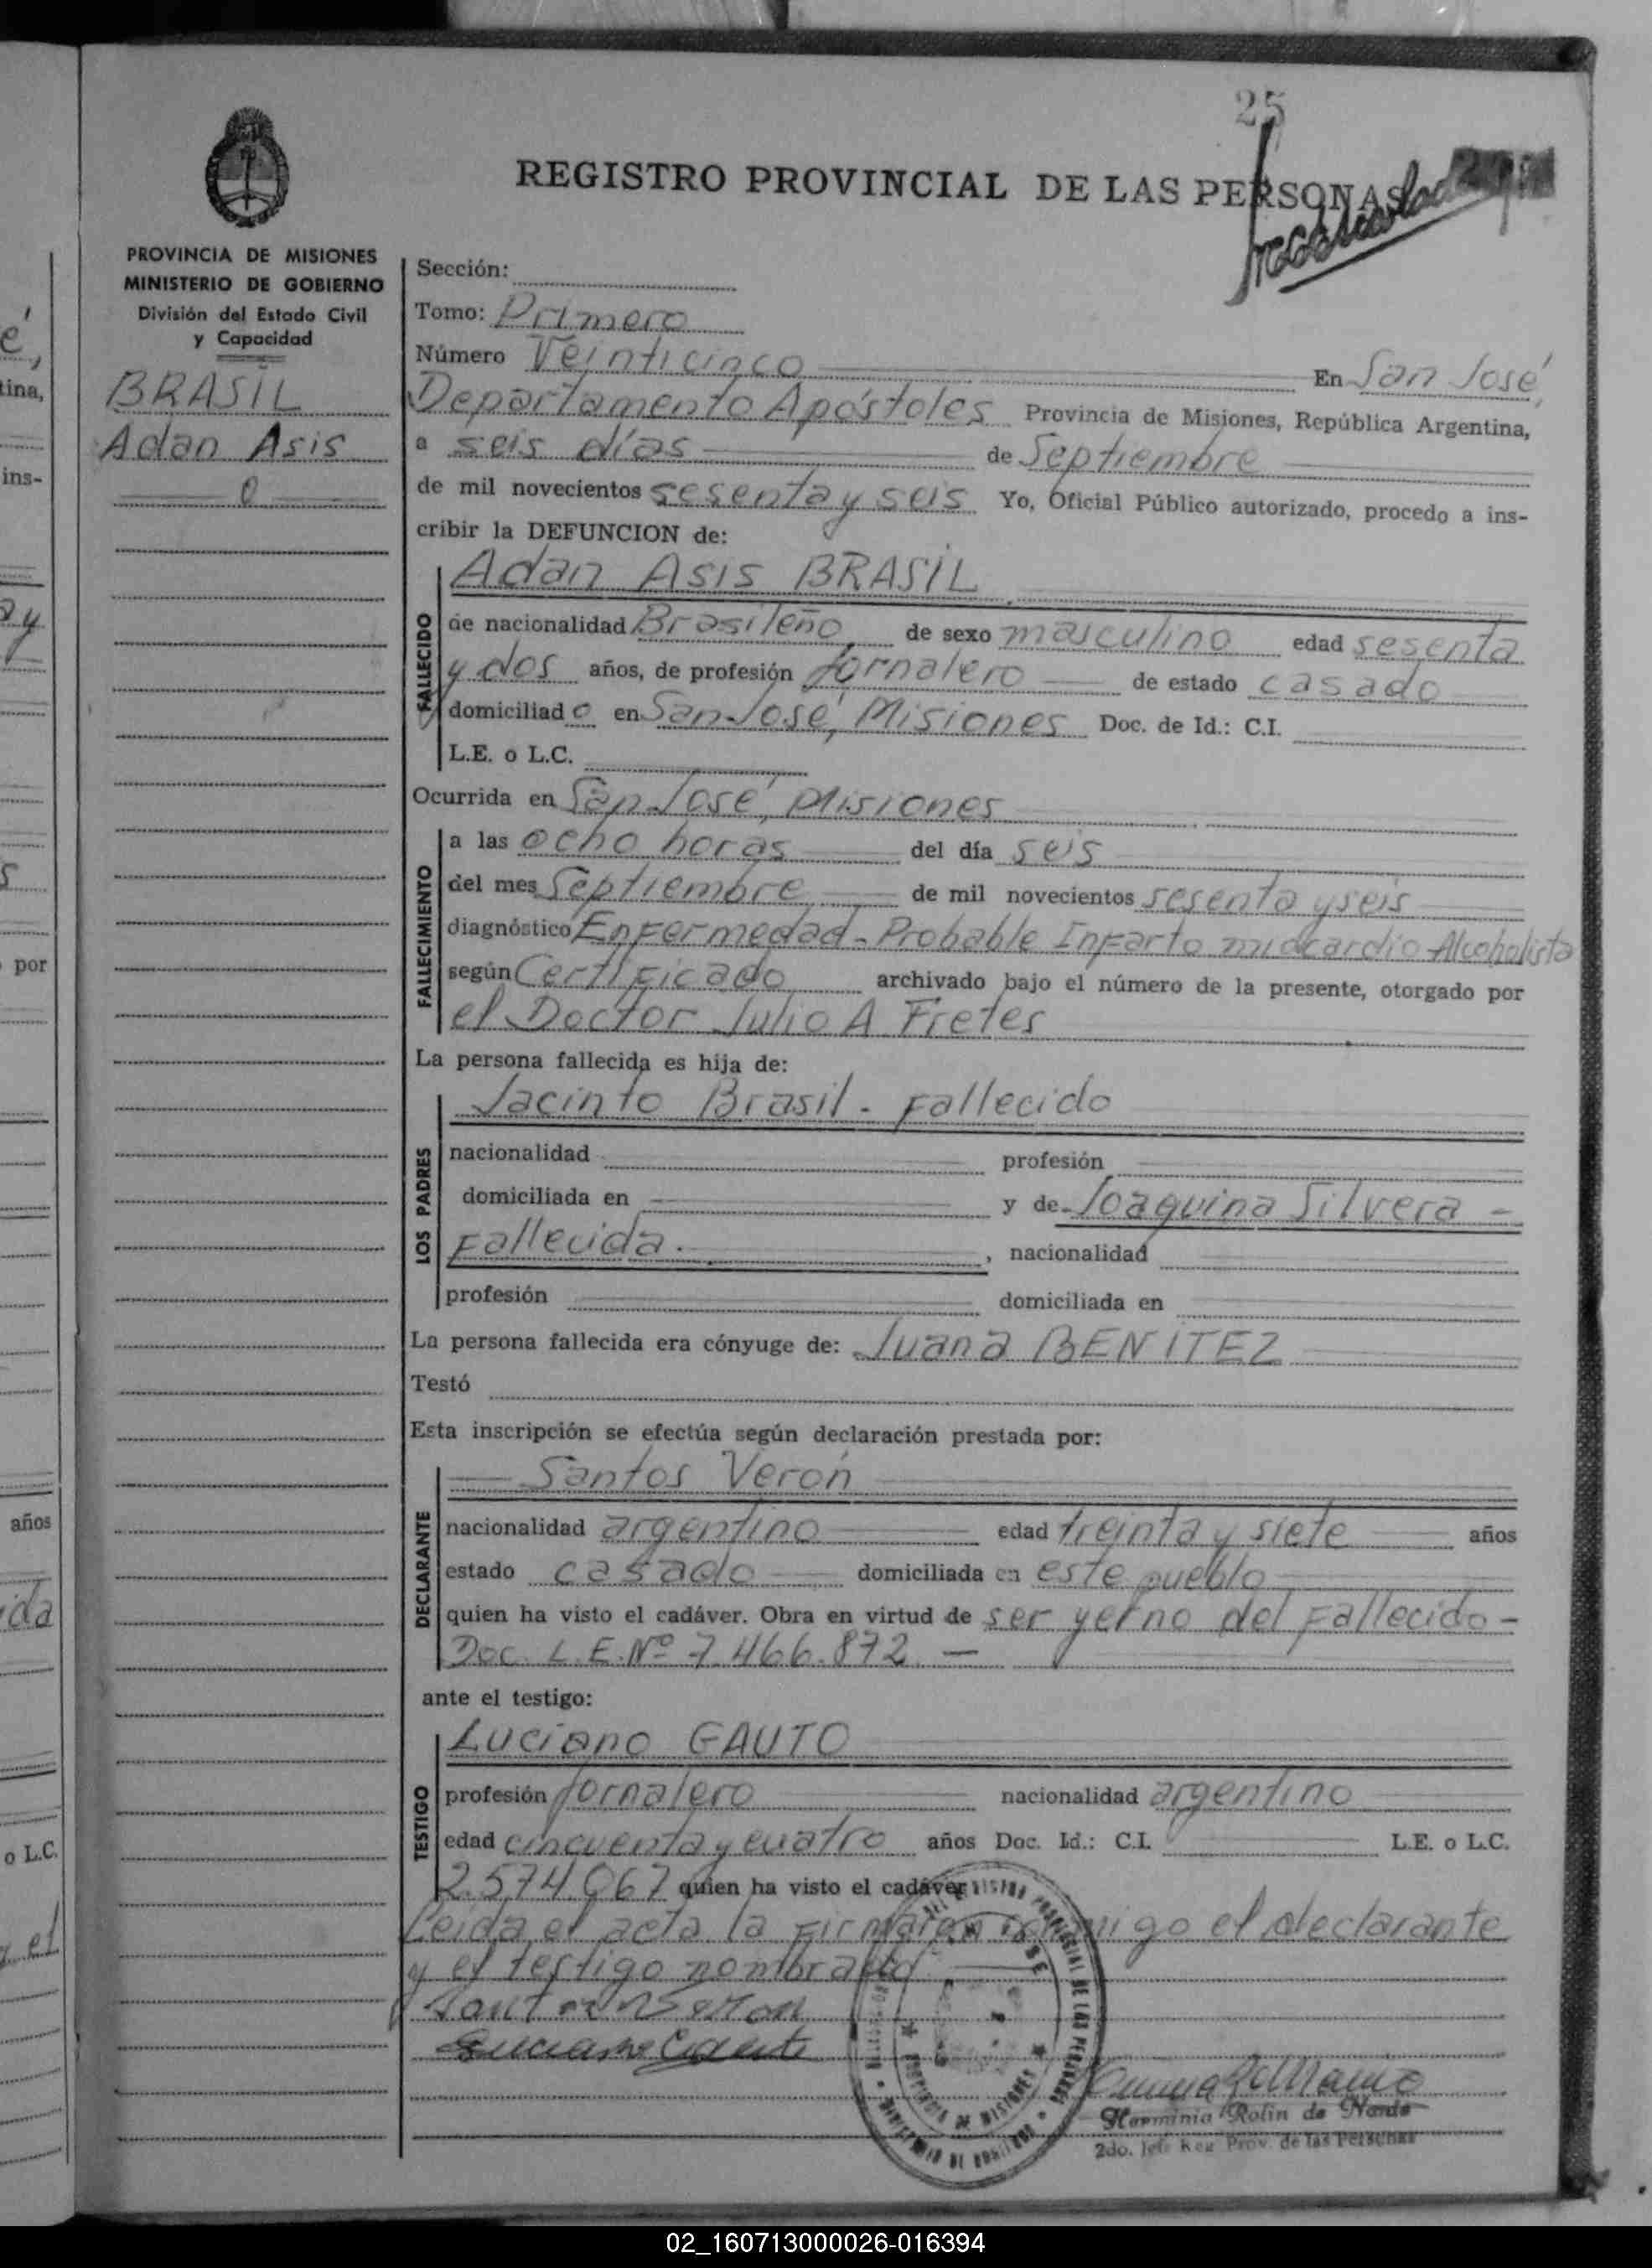 25
REGISTRO PROVINCIAL DE LAS PERSONAS
PROVINCIA DE MISIONES
MINISTERIO DE GOBIERNO
División del Estado Civil
y Capacidad
BRASIL
Adan Asis
Sección:
Tomo: Primero
Número Veinticinco En San José,
Departamento Apóstoles Provincia de Misiones, República Argentina,
a seis días de Septiembre
de mil novecientos sesenta y seis Yo, Oficial Público autorizado, procedo a ins-
cribir la DEFUNCION de:
FALLECIDO
Adan Asis BRASIL
de nacionalidad Brasileño de sexo masculino edad sesenta
y dos años, de profesión Jornalero de estado casado
domiciliado en San José, Misiones Doc. de Id.: C.I.
L.E. o L.C.
Ocurrida en San José, Misiones
FALLECIMIENTO
a las ocho horas del día seis
del mes Septiembre de mil novecientos sesenta y seis
diagnóstico Enfermedad - Probable Infarto miocardio Alcoholista
según Certificado archivado bajo el número de la presente, otorgado por
el Doctor Julio A Fretes
La persona fallecida es hija de:
LOS PADRES
Jacinto Brasil - Fallecido
nacionalidad profesión
domiciliada en y de Joaquina Silvera -
Fallecida. , nacionalidad
profesión domiciliada en
La persona fallecida era cónyuge de: Juana BENITEZ
Testó
Esta inscripción se efectúa según declaración prestada por:
DECLARANTE
Santos Verón
nacionalidad argentino edad treinta y siete años
estado casado domiciliada en este pueblo
quien ha visto el cadáver. Obra en virtud de ser yerno del Fallecido -
Doc. L.E. Nº 7.466.872 -
ante el testigo:
TESTIGO
Luciano GAUTO
profesión Jornalero nacionalidad argentino
edad cincuenta y cuatro años Doc. Id.: C.I. L.E. o L.C.
2.574.067 quien ha visto el cadáver
Leida el acta la firmaron conmigo el declarante
y el testigo nombrado
Santos Veron
Luciano Gauto
PROVINCIA DE MISIONES
Herminia Rolin de Nardo
2do. Jefe Reg Prov. de las Personas
02_160713000026-016394